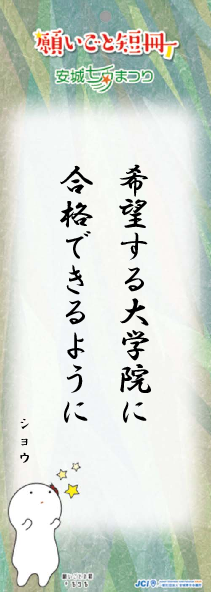 願いごと短冊
安城七夕まつり
希望する大学院に
合格できるように
ショウ
JCI